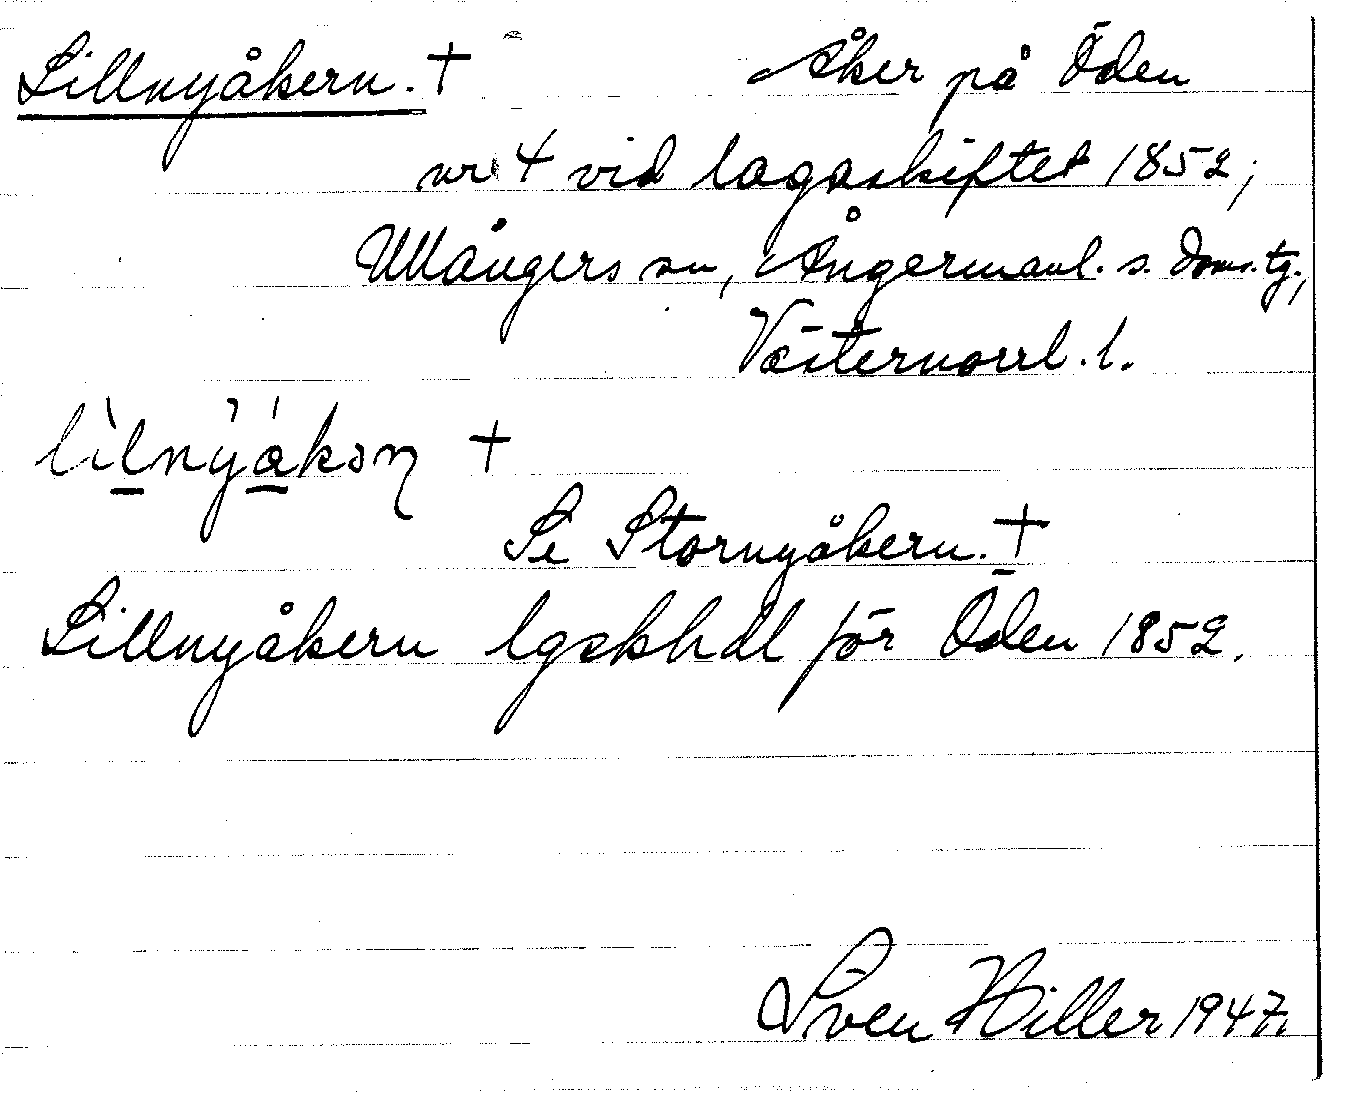 Lillnyåkern. † Åker på Öden
nr 4 vid lagaskiftet 1852;
Ullångers sn, Ångermanl. s. doms. tg.,
Västernorrl. l.
†
Se Stornyåkern. †
Lillnyåkern lgskhdl för Öden 1852.
Sven Hiller 1947.